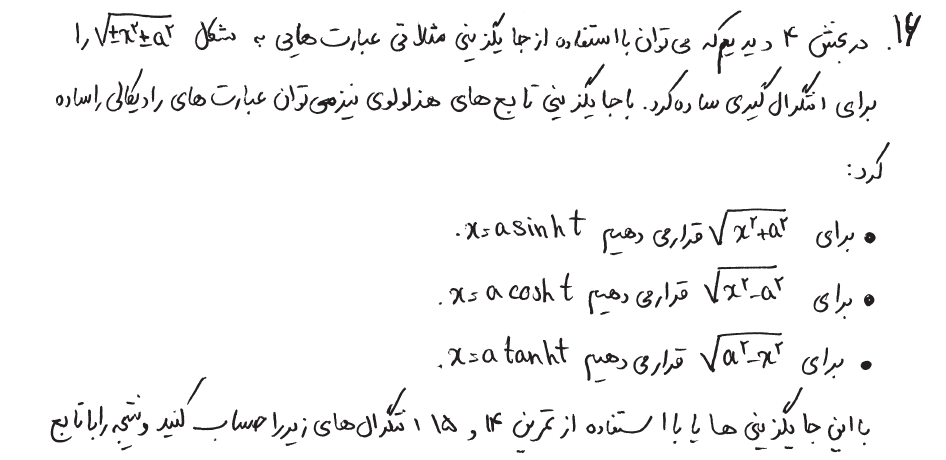 ۱۶. در بخش ۴ دیدیم که می‌توان با استفاده از جایگزینی مثلثاتی عبارت‌هایی به شکل √±x²±a² را
برای انتگرال‌گیری ساده کرد. با جایگزینی تابع‌های هذلولوی نیز می‌توان عبارت‌های رادیکالی را ساده
کرد:
• برای √x²+a² قرار می‌دهیم x=a sinh t.
• برای √x²-a² قرار می‌دهیم x=a cosh t.
• برای √a²-x² قرار می‌دهیم x=a tanh t.
با این جایگزینی‌ها یا با استفاده از تمرین ۱۴ و ۱۵ انتگرال‌های زیر را حساب کنید و نتیجه را با تابع